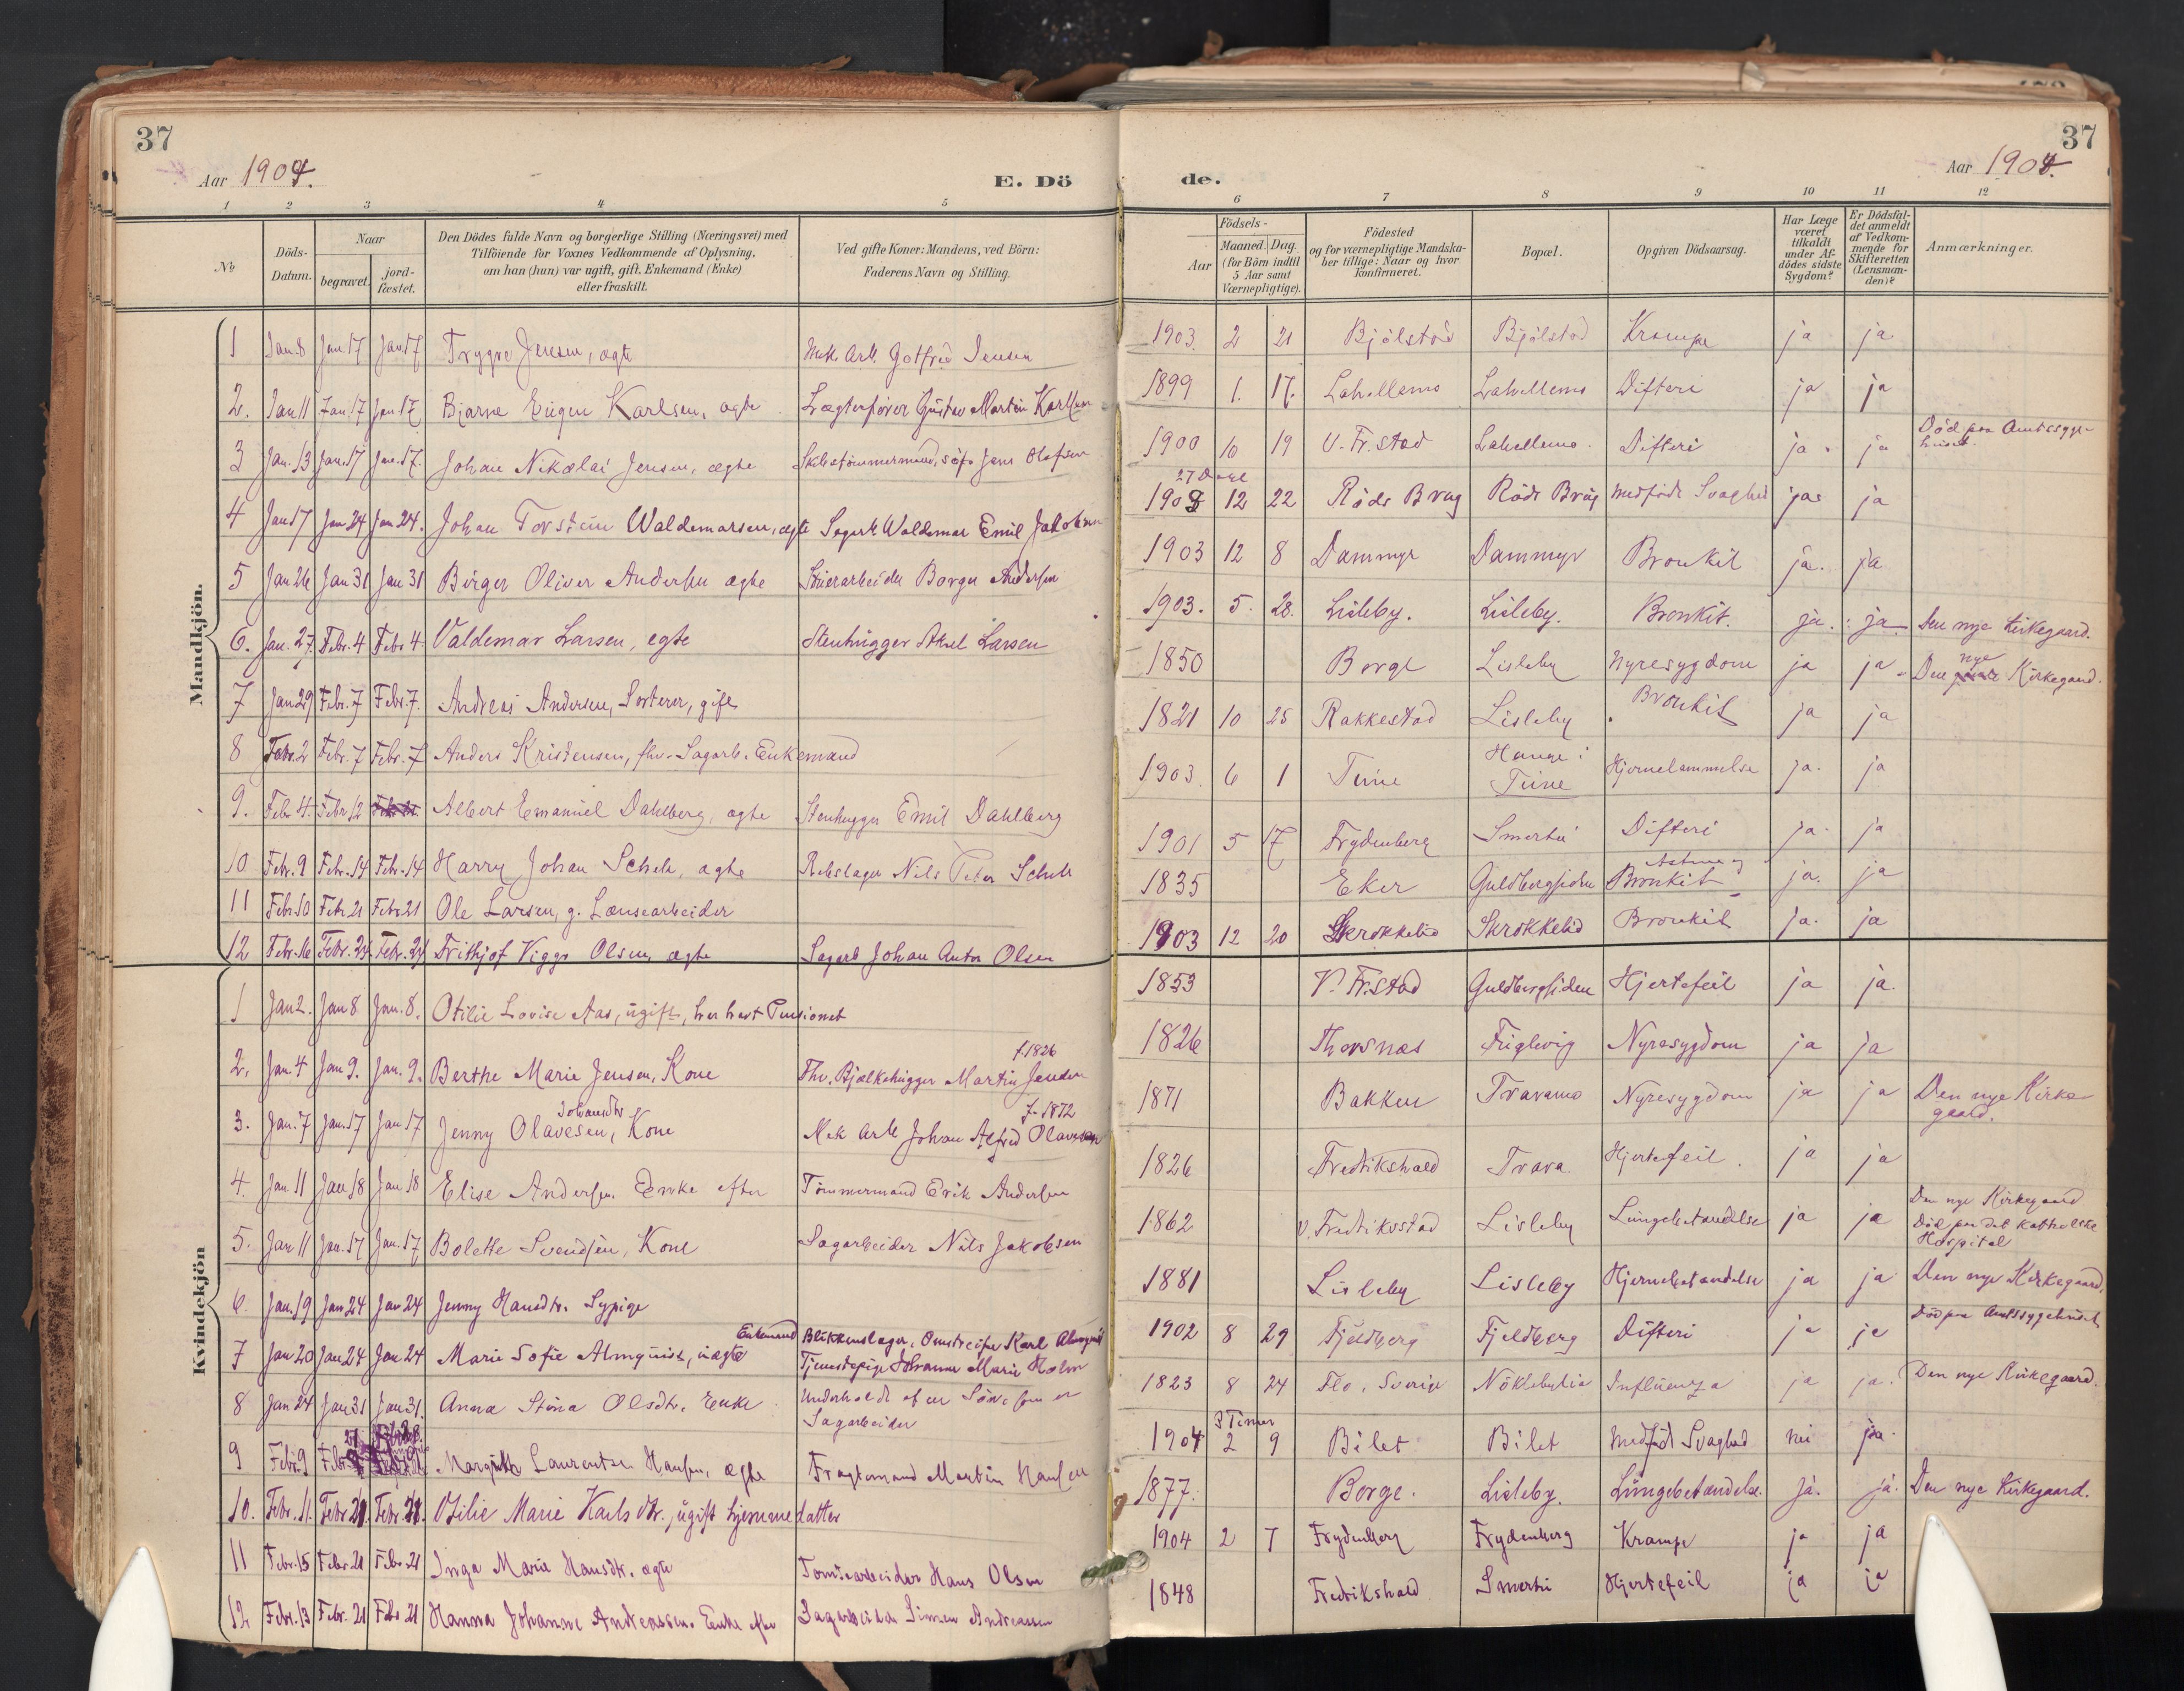 37
Aar 1904.
E. Dö
1 2 3 4 5
No
Döds-
Datum.
Naar
begravet.
jord-
fæstet.
Den Dödes fulde Navn og borgerlige Stilling (Næringsvei) med
Tilföiende for Voxnes Vedkommende af Oplysning,
om han (hun) var ugift, gift, Enkemand (Enke)
eller fraskilt.
Ved gifte Koner: Mandens, ved Börn:
Faderens Navn og Stilling.
Mandkjön.
1 Jan. 8 Jan. 17 Jan. 17 Trygve Jensen, ægte Mek. Arb. Gotfred Jensen
2. Jan 11 Jan. 17 Jan 17 Bjarne Eugen Karlsen, ægte Lægterfører Gustav Martin Karlsen
3 Jan. 13 Jan. 17 Jan. 17. Johan Nikolai Jensen, ægte Skibstømmermand, Jens Olafsen
4 Jan 17 Jan 24 Jan 24. Johan Torstein Waldemarsen, ægte Sagarb. Waldemar Emil Jakobsen
5 Jan 26 Jan 31 Jan 31 Birger Oliver Andersen ægte Borger Andersen
6. Jan. 27. Febr. 4 Febr 4 Valdemar Larsen, egte Stenhugger Aksel Larsen
7 Jan 29 Febr. 7 Febr. 7. Andreas Andersen, Sorterer, gift
8 Febr. 2 Febr. 7 Febr. 7 Anders Kristensen, fhv. Sagarb. Enkemand
9. Febr 4. Febr 12 Albert Emanuel Dahlberg, ægte Stenhugger Emil Dahlberg
10 Febr. 9 Febr. 14 Febr. 14 Harry Johan Scheh, ægte Rebslager Nils Peter Scheh
11 Febr. 10 Febr. 21 Febr 21 Ole Larsen, g. Lænsearbeider
12 Febr. 16 Febr. 24. Febr. 24 Frithjof Viggo Olsen, ægte Sagarb Johan Anton Olsen
Kvindekjön
1 Jan 2. Jan 8 Jan. 8. Otilie Lovise Aas, ugift, har havt Pensionat
2. Jan. 4 Jan 9. Jan. 9. Berthe Marie Jensen, Kone Fhv. Bjælkehugger Martin Jensen
f. 1826
3. Jan. 7 Jan. 17 Jan 17 Jenny Olavesen, Kone Mek Arb Johan Alfred Olavesen
Johansdtr
f. 1872
4. Jan. 11 Jan 18 Jan 18 Elise Andersen. Enke efter Tømmermand Erik Andersen
5. Jan 11 Jan. 17 Jan. 17, Bolette Svendsen, Kone Sagarbeider Nils Jakobsen
6. Jan. 19 Jan 24 Jan 24 Jenny Hansdtr. Sypige
7 Jan 20 Jan 24 Jan 24 Marie Sofie Almquist, uægte Enkemand Blikkenslager, Omstreifer Karl Almquist
Tjenestepige Johanne Marie Holm
8 Jan 24 Jan 31 Jan 31. Anna Stina Olsdtr. Enke Underholdt af en Søn, som er
Sagarbeider
9 Febr. 9 Febr. 21 Margith Laurentse Hansen, ægte Fragtemand Martin Hansen
10. Febr. 11. Febr 21. Febr. 21. Otilie Marie Karlsdtr. ugift hjemmedatter
11 Febr. 15 Febr. 21 Febr 21 Inga Marie Hansdtr. ægte Tomtearbeider Hans Olsen
12 Febr. 13 Febr. 21 Febr. 21 Hanna Johanne Andreassen. Enke efter Sagarbeider Simen Andreassen
37
Aar 1904.
de.
6 7 8 9 10 11 12
Födsels-
Aar
Maaned. Dag.
(for Börn indtil
5 Aar samt
Værnepligtige).
Födested
og for værnepligtige Mandska-
ber tillige: Naar og hvor
konfirmeret.
Bopæl.
Opgiven Dödsaarsag.
Har Læge
været
tilkaldt
under Af-
dödes sidste
Sygdom?
Er Dödsfal-
det anmeldt
af Vedkom-
mende for
Skifteretten
(Lensman-
den)?
Anmærkninger.
1903. 2 21 Bjölstad Bjölstad Krampe ja ja
1899 1. 17. Lahellemo Lahellemo Difteri ja ja
1900 10 19 V. Fr.stad Lahellemo. Difteri ja. ja Död paa Amtssyge-
huset.
27 Dage
1903 12 22 Råds Brug Råds Brug Medfödt Svaghed ja. ja
1903 12 8 Dammyr Dammyr Bronkit ja. ja
1903. 5. 28. Lisleby. Lisleby. Bronkit. ja. ja. Den nye Kirkegaard.
1850 Borge Lisleby Nyresygdom ja ja Den nye Kirkegaard.
1821 10 25 Rakkestad Lisleby Bronkit ja ja
1903. 6 1 Tune Hauge i
Tune Hjernelammelse ja. ja
1901 5 17 Frydenberg Smertu Difteri ja. ja
1835 Eker Guldbergsiden Astma og
Bronkit ja. ja
1903 12 20 Skrokkelid Skrokkelid Bronkit ja. ja
1853 V. Fr.stad Guldbergsiden Hjertefeil ja ja.
1826 Thorsnæs Fuglevig Nyresygdom ja ja
1871 Bakken Traramo Nyresygdom ja ja Den nye Kirke-
gaard.
1826 Fredrikshald Trara. Hjertefeil. ja ja
1862 V. Fredriksstad Lisleby Lungebetændelse ja ja Den nye Kirkegaard
Död paa det katholske
Hospital
1881 Lisleby Lisleby Hjernebetændelse ja ja Den nye Kirkegaard.
1902 8 29 Fjeldberg Fjeldberg Difteri ja ja Död paa Amtssygehuset
1823 8 24 Flo. Sverige Nöklebylia Influenza ja ja. Den nye Kirkegaard.
3 Timer
1904 2 9 Bilet Bilet Medfödt Svaghed nei ja.
1877. Borge. Lisleby. Lungebetændelse. ja. ja. Den nye Kirkegaard.
1904 2 7 Frydenberg Frydenberg Krampe ja ja
1848 Fredrikshald Smertu Hjertefeil ja ja